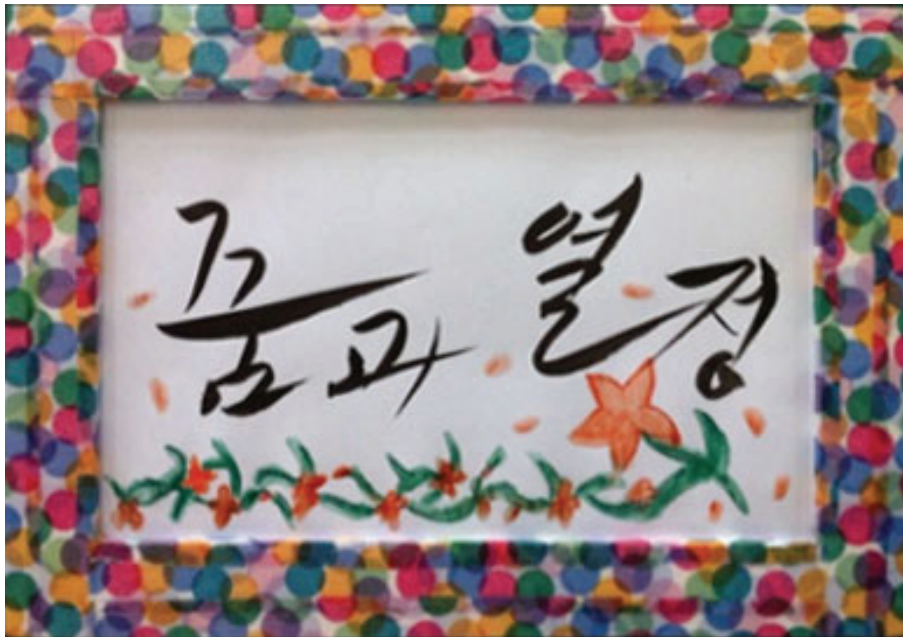 꿈과 열정